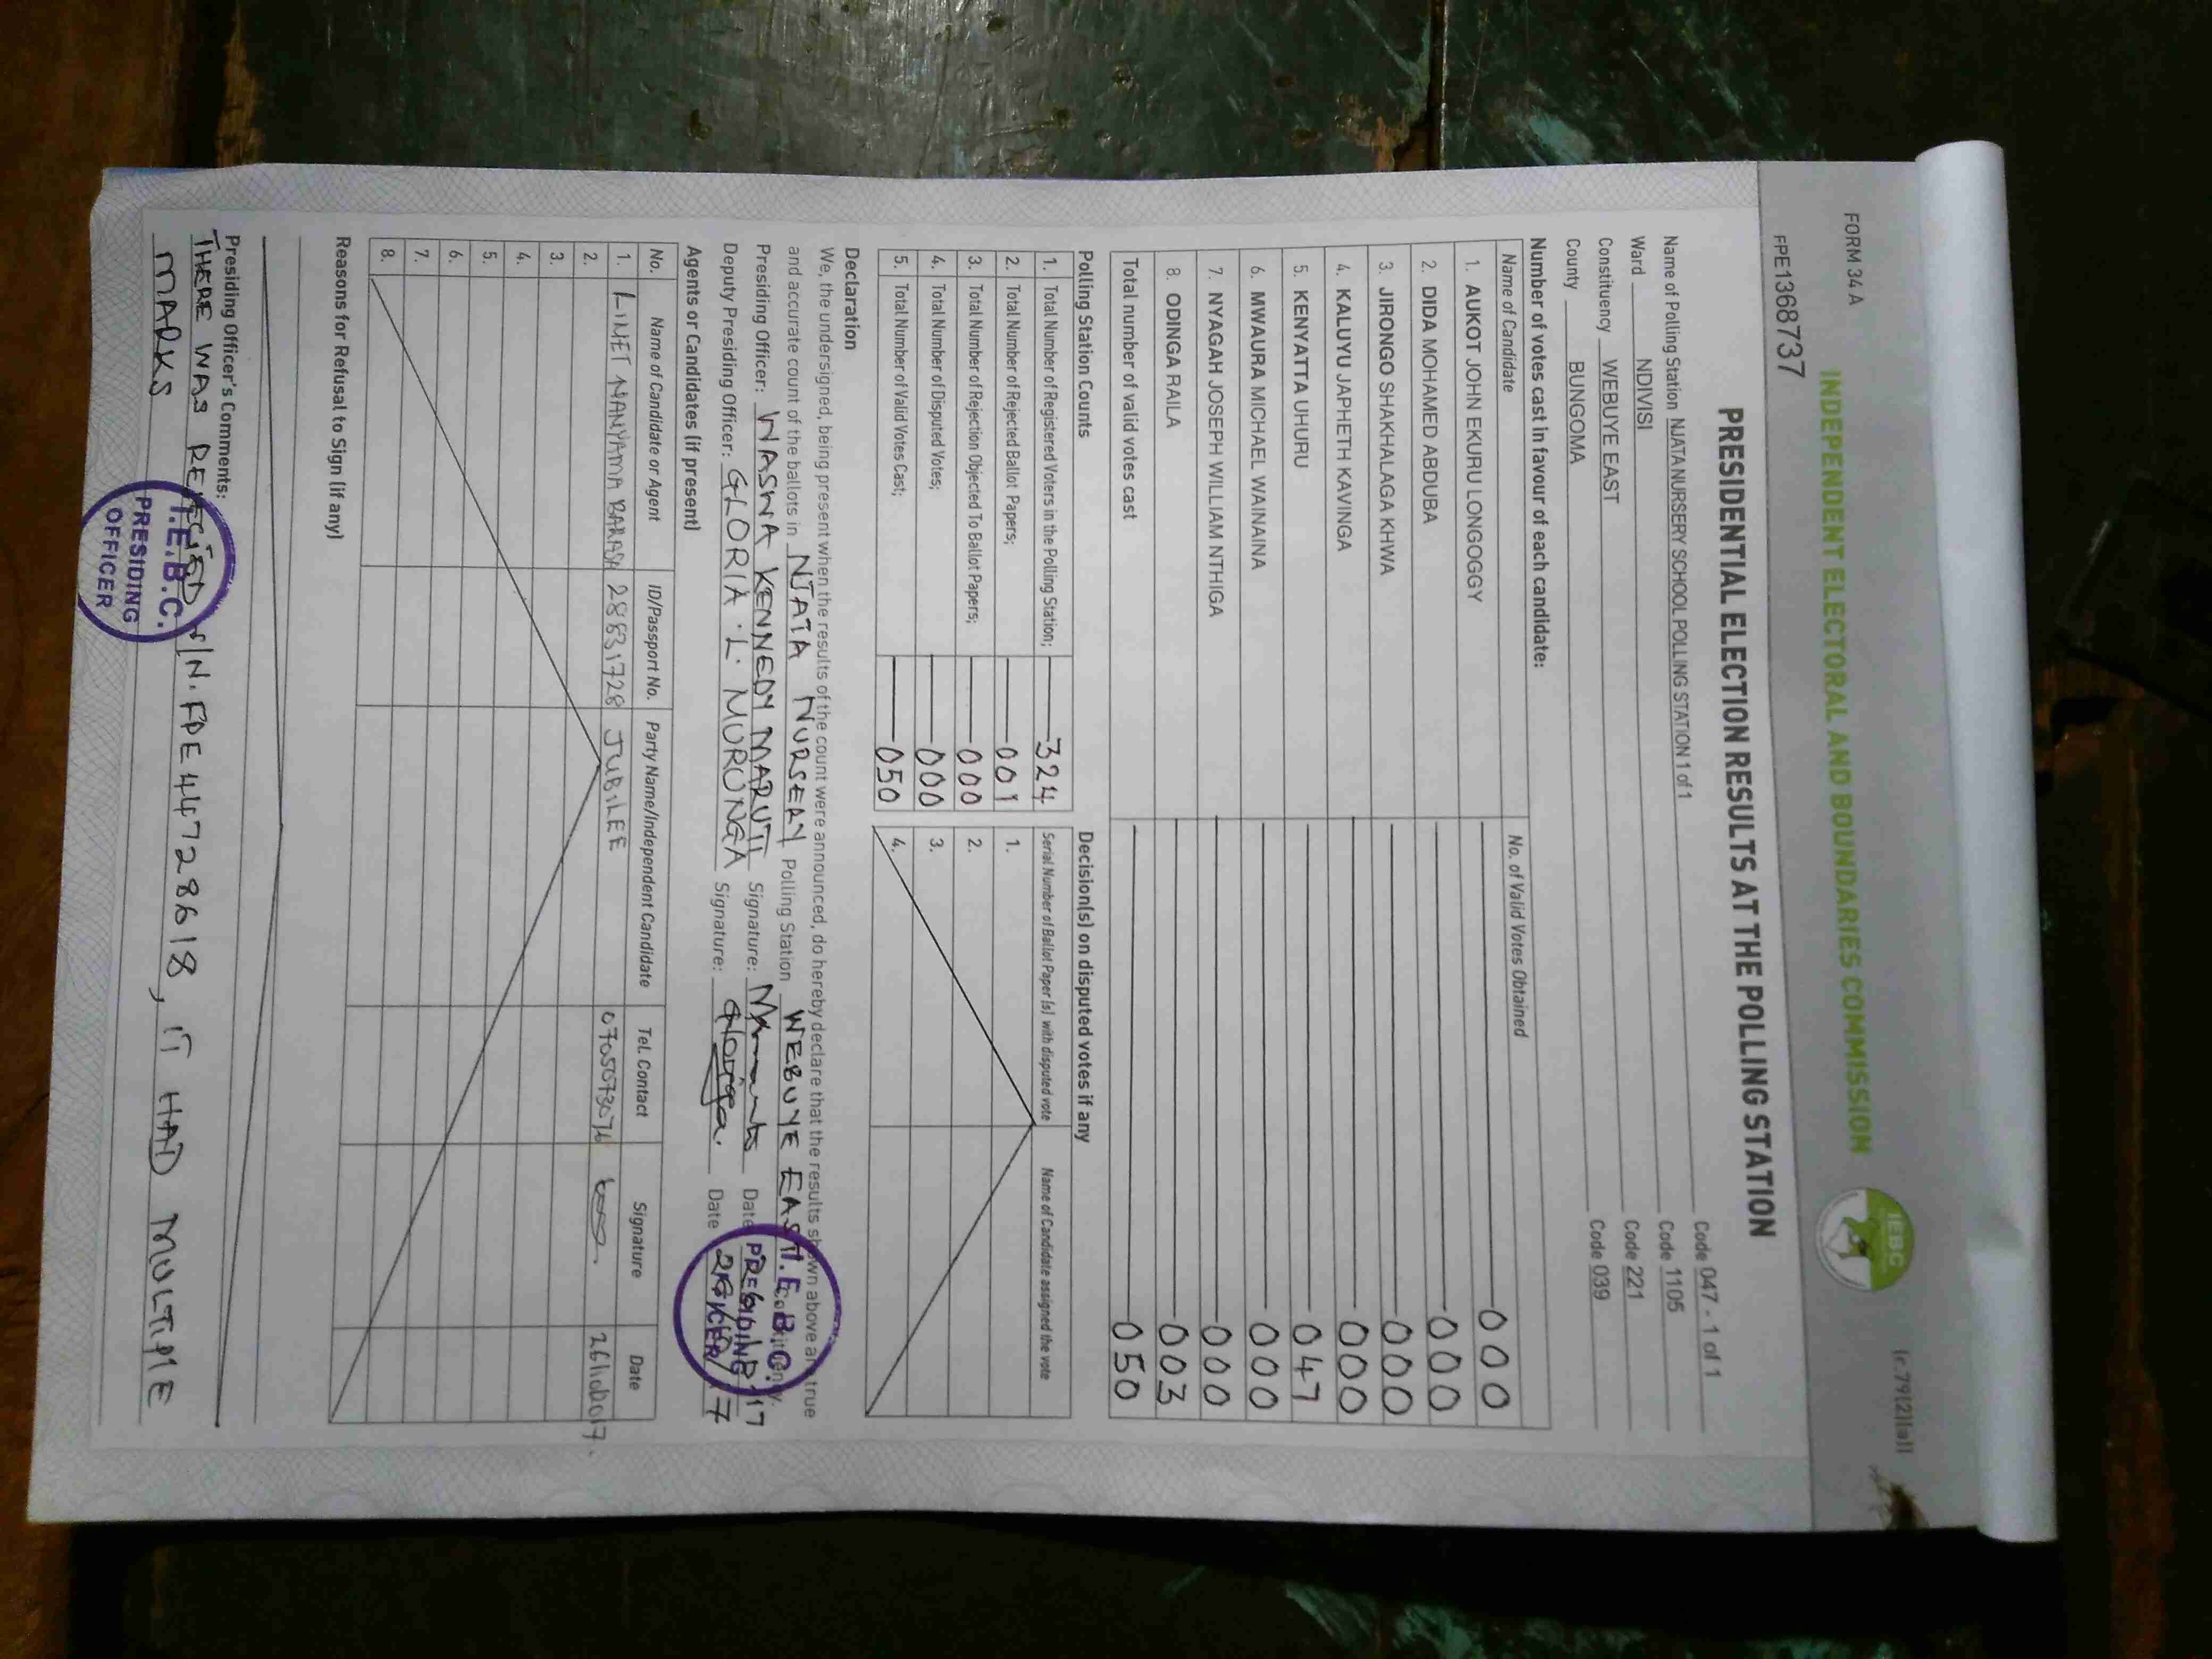 FORM 34 A
(r.79(2)(a))
INDEPENDENT ELECTORAL AND BOUNDARIES COMMISSION
IEBC
FPE1368737
PRESIDENTIAL ELECTION RESULTS AT THE POLLING STATION
Name of Polling Station NJATA NURSERY SCHOOL POLLING STATION 1 of 1 Code 047 - 1 of 1
Ward NDIVISI Code 1105
Constituency WEBUYE EAST Code 221
County BUNGOMA Code 039
Number of votes cast in favour of each candidate:
Name of Candidate No. of Valid Votes Obtained
1. AUKOT JOHN EKURU LONGOGGY 000
2. DIDA MOHAMED ABDUBA 000
3. JIRONGO SHAKHALAGA KHWA 000
4. KALUYU JAPHETH KAVINGA 000
5. KENYATTA UHURU 047
6. MWAURA MICHAEL WAINAINA 000
7. NYAGAH JOSEPH WILLIAM NTHIGA 000
8. ODINGA RAILA 003
Total number of valid votes cast 050
Polling Station Counts Decision(s) on disputed votes if any
1. Total Number of Registered Voters in the Polling Station; 324 Serial Number of Ballot Paper (s) with disputed vote Name of Candidate assigned the vote
2. Total Number of Rejected Ballot Papers; 001 1.
3. Total Number of Rejection Objected To Ballot Papers; 000 2.
4. Total Number of Disputed Votes; 000 3.
5. Total Number of Valid Votes Cast; 050 4.
Declaration
We, the undersigned, being present when the results of the count were announced, do hereby declare that the results shown above are true
and accurate count of the ballots in NJATA NURSERY Polling Station WEBUYE EAST Constituency.
Presiding Officer: WASWA KENNEDY MARUTI Signature: Date
Deputy Presiding Officer: GLORIA . L. MURUNGA Signature: Date
I.E.B.C. PRESIDING OFFICER
Agents or Candidates (if present)
No. Name of Candidate or Agent ID/Passport No. Party Name/Independent Candidate Tel. Contact Signature Date
1. LINET NANYAMA BARASA 28831728 JUBILEE 0705073076 26/10/2017.
2.
3.
4.
5.
6.
7.
8.
Reasons for Refusal to Sign (if any)
Presiding Officer's Comments:
THERE WAS REJECTED S/N. FPE44728618, IT HAD MULTIPLE
MARKS
I.E.B.C. PRESIDING OFFICER